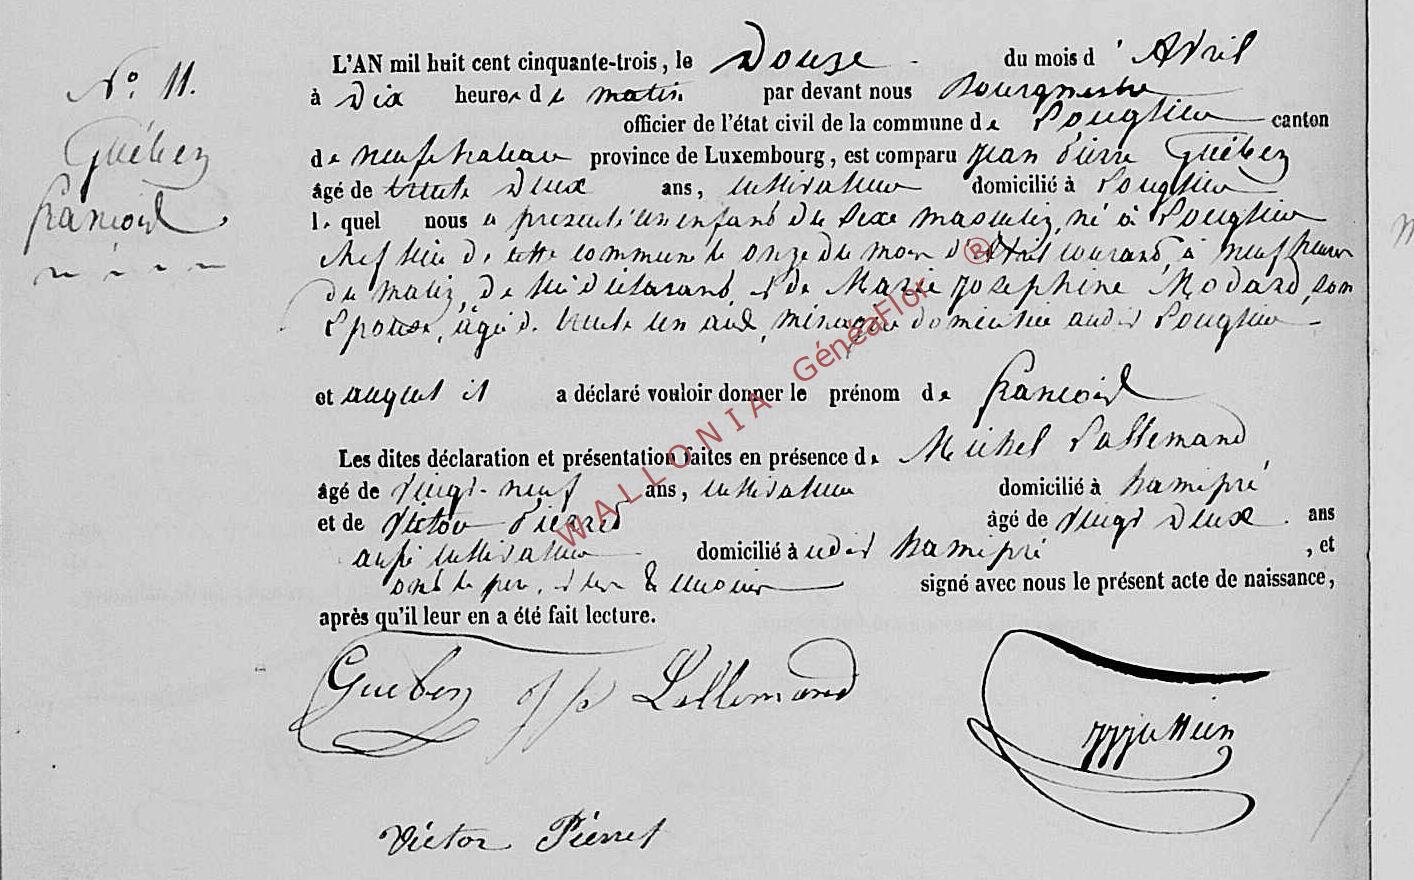 N° 11.
Guében
françois
L'AN mil huit cent cinquante-trois, le Douze du mois d' Avril
à Dix heures du matin par devant nous Bourgmestre
officier de l'état civil de la commune de Longlier canton
de neufchateau province de Luxembourg, est comparu Jean Pierre Guében
âgé de trente Deux ans, cultivateur domicilié à Longlier
lequel nous a presenté un enfant du sexe masculin, né à Longlier
chef lieu de cette commune le onze du mois d'Avril courant, à neuf heures
du matin, de lui déclarant, et de Marie Josephine Modard, son
Epouse, agée de trente un ans, ménagère domiciliée audit Longlier
et auquel il a déclaré vouloir donner le prénom de françois
Les dites déclaration et présentation faites en présence de Michel Lallemand
âgé de vingt-neuf ans, cultivateur domicilié à hamipré
et de Victor Pierret âgé de vingt Deux ans
aussi cultivateur domicilié à udit hamipré, et
ont le père, et les témoins signé avec nous le présent acte de naissance,
après qu'il leur en a été fait lecture.
Gueben Lallemand
Victor Pierret
WALLONIA GénéaFlor ®